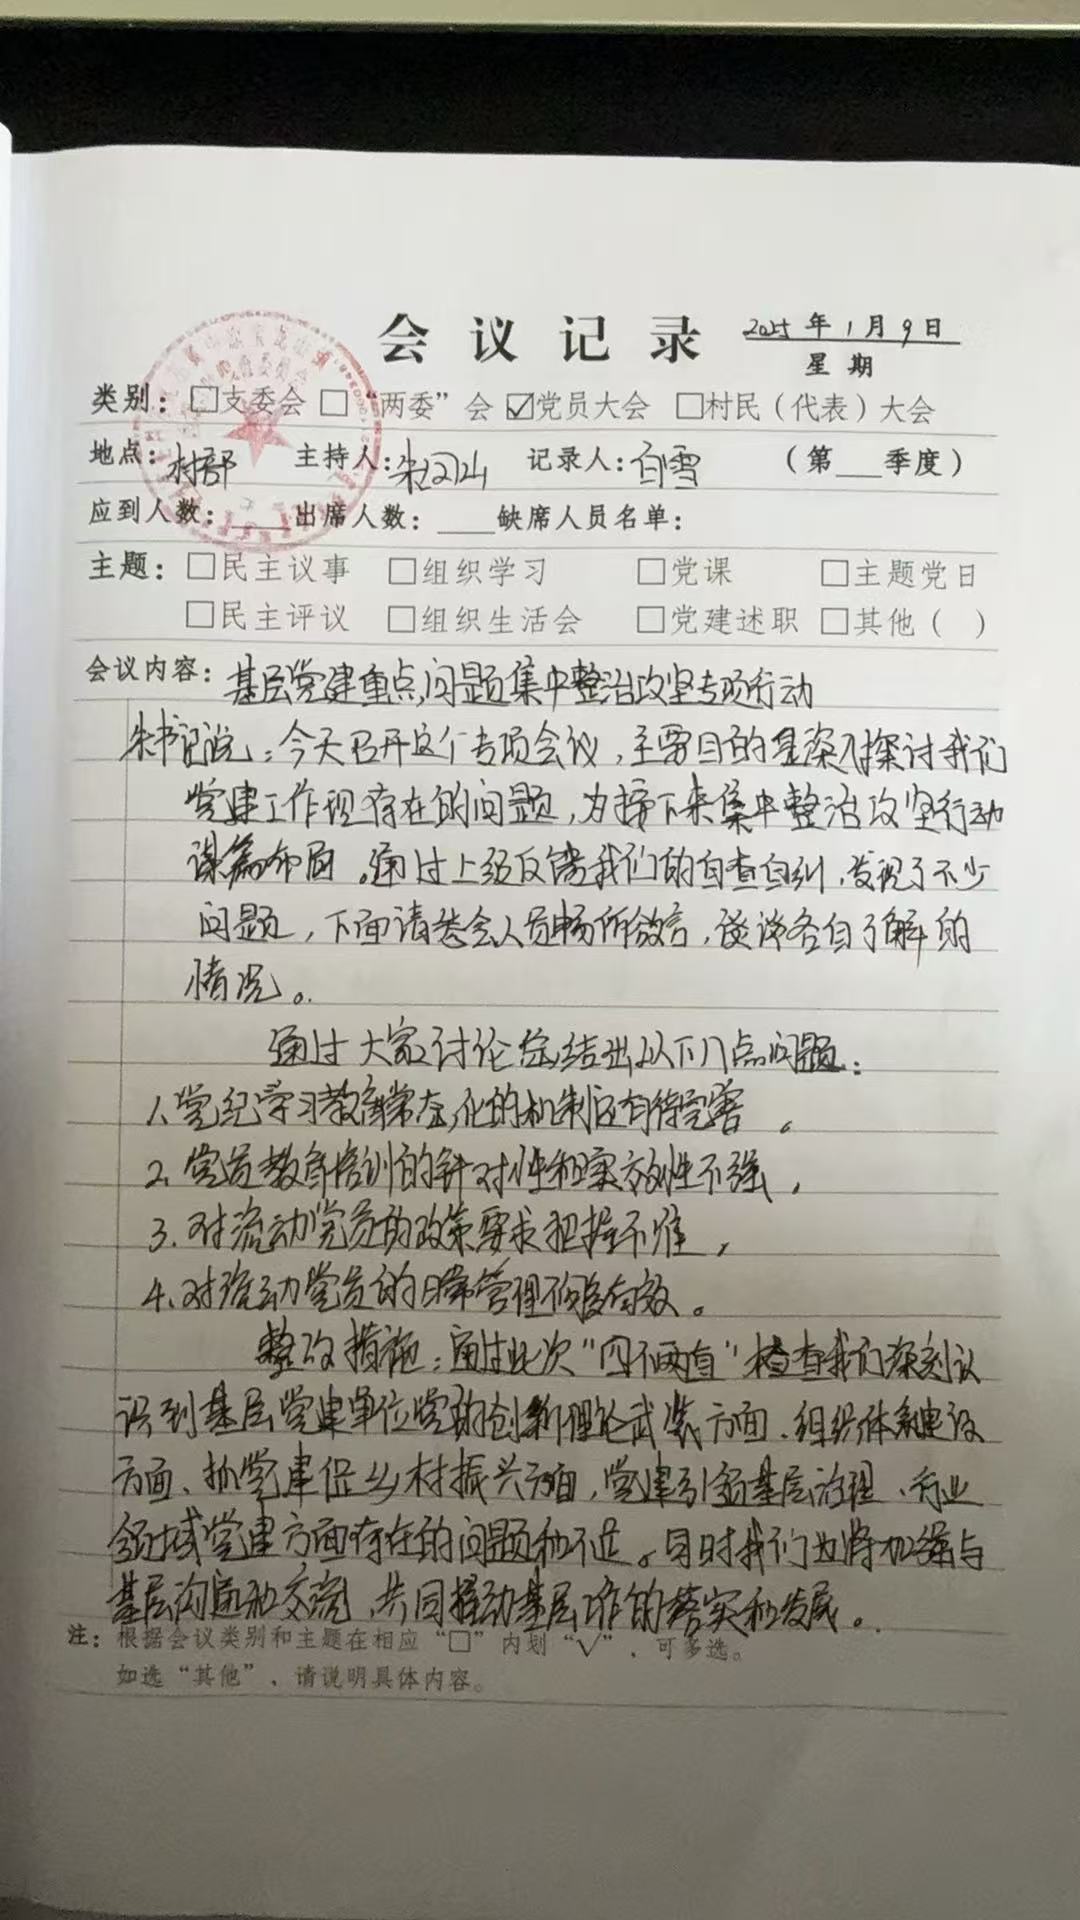 会议记录 2025年1月9日
星期
类别：□支委会 □“两委”会 ☑党员大会 □村民（代表）大会
地点：村部 主持人：朱 山 记录人：白雪 （第___季度）
应到人数：____出席人数：____缺席人员名单：
主题：□民主议事 □组织学习 □党课 □主题党日
□民主评议 □组织生活会 □党建述职 □其他（ ）
会议内容：基层党建重点问题集中整治攻坚专项行动
朱书记说：今天召开这个专项会议，主要目的是深入探讨我们
党建工作现存在的问题，为接下来集中整治攻坚行动
谋篇布局。通过上级反馈我们的自查自纠，发现了不少
问题，下面请参会人员畅所欲言，谈谈各自了解的
情况。
通过大家讨论总结出以下几点问题：
1、党纪学习教育常态化的机制还有待完善。
2、党员教育培训的针对性和实效性不强，
3、对流动党员的政策要求把握不准，
4、对流动党员的日常管理不够有效。
整改措施：通过此次“四不两直”检查我们深刻认
识到基层党建单位党的创新理论武装方面、组织体系建设
方面、抓党建促乡村振兴方面，党建引领基层治理、行业
领域党建方面存在的问题和不足。同时我们也将加强与
基层沟通和交流，共同推动基层工作的落实和发展。
注：根据会议类别和主题在相应“□”内划“√”，可多选。
如选“其他”，请说明具体内容。